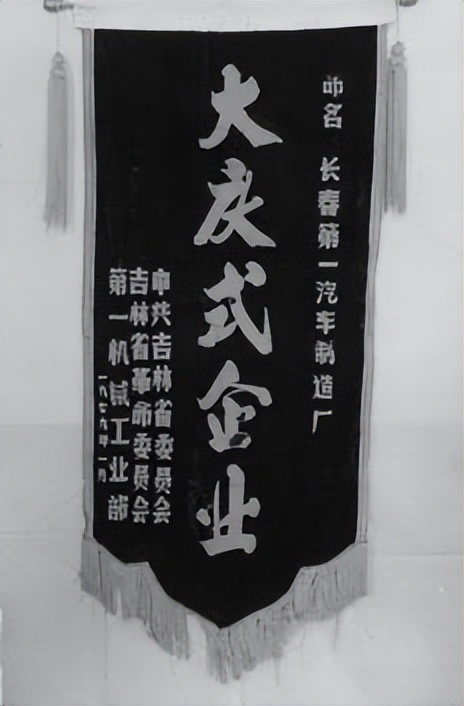 命名 长春第一汽车制造厂
大庆式企业
中共吉林省委员会
吉林省革命委员会
第一机械工业部